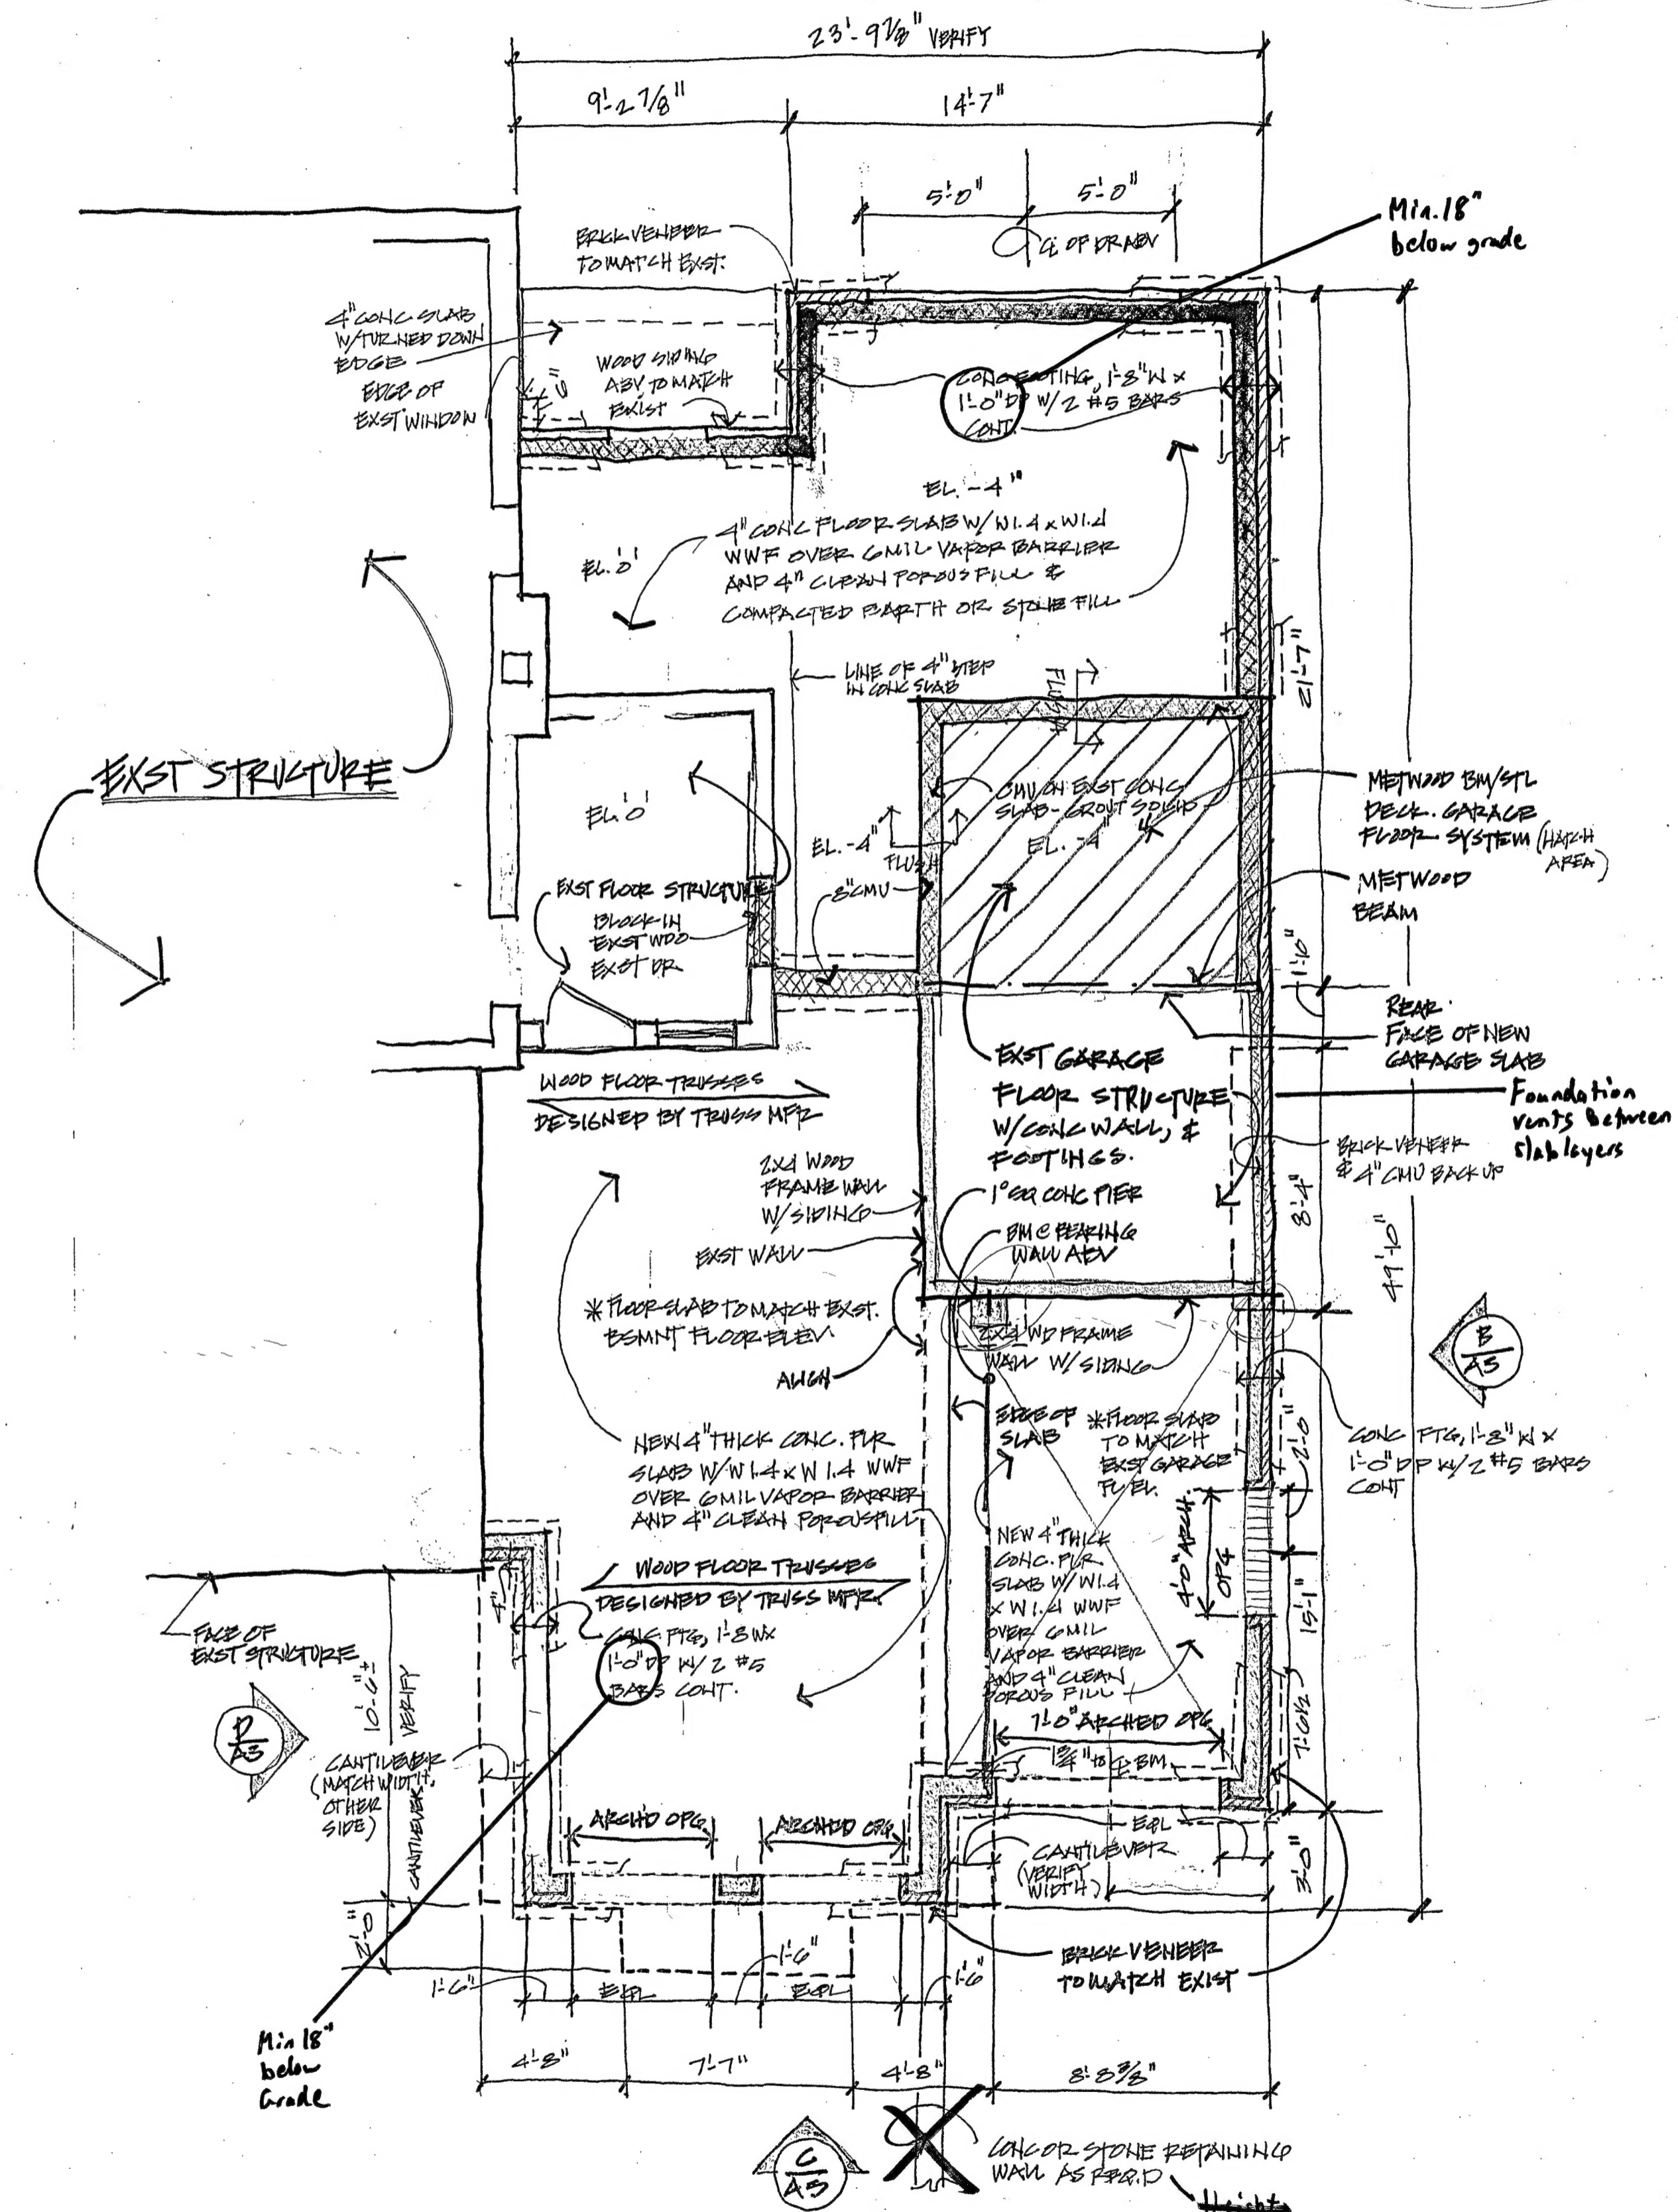 23'-9 7/8" VERIFY
9'-2 7/8"
14'-7"
5'-0"
5'-0"
℄ OF DR ABV
Min. 18"
below grade
BRICK VENEER
TO MATCH EXST.
4" CONC SLAB
W/TURNED DOWN
EDGE
EDGE OF
EXST WINDOW
6"
WOOD SIDING
ABV TO MATCH
EXIST
CONC FOOTING, 1'-8" W x
1'-0" DP W/ 2 #5 BARS
CONT.
EL. -4"
4" CONC FLOOR SLAB W/ W1.4 x W1.4
WWF OVER 6 MIL VAPOR BARRIER
AND 4" CLEAN POROUS FILL &
COMPACTED EARTH OR STONE FILL
EL. '0'
LINE OF 4" STEP
IN CONC SLAB
FLUSH
21'-7"
EXST STRUCTURE
EL. '0'
CMU ON EXST CONC
SLAB - GROUT SOLID
EL. -4"
EL. -4"
FLUSH
8" CMU
METWOOD BM/STL
DECK. GARAGE
FLOOR SYSTEM (HATCH
AREA)
METWOOD
BEAM
EXST FLOOR STRUCTURE
BLOCK-IN
EXST WDO
EXST DR
1'-10"
REAR
FACE OF NEW
GARAGE SLAB
EXST GARAGE
FLOOR STRUCTURE
W/CONC WALL, &
FOOTINGS.
Foundation
vents between
slab layers
WOOD FLOOR TRUSSES
DESIGNED BY TRUSS MFR
BRICK VENEER
& 4" CMU BACK UP
2x4 WOOD
FRAME WALL
W/SIDING
EXST WALL
1° SQ CONC PIER
BM @ BEARING
WALL ABV
8'-4"
49'-10"
* FLOOR SLAB TO MATCH EXST.
BSMNT FLOOR ELEV.
ALIGN
2x4 WD FRAME
WALL W/ SIDING
B
A5
EDGE OF
SLAB
* FLOOR SLAB
TO MATCH
EXST GARAGE
FL EL.
2'-0"
CONC FTG, 1'-8" W x
1'-0" DP W/ 2 #5 BARS
CONT
NEW 4" THICK CONC. FLR
SLAB W/ W1.4 x W1.4 WWF
OVER 6 MIL VAPOR BARRIER
AND 4" CLEAN POROUS FILL
NEW 4" THICK
CONC. FLR
SLAB W/ W1.4
x W1.4 WWF
OVER 6 MIL
VAPOR BARRIER
AND 4" CLEAN
POROUS FILL
4'-0" ARCH.
OPG
15'-1"
WOOD FLOOR TRUSSES
DESIGNED BY TRUSS MFR.
4"
CONC. FTG, 1'-8 W x
1'-0" DP W/ 2 #5
BARS CONT.
FACE OF
EXST STRUCTURE
10'-6"±
VERIFY
CANTILEVER
D
A3
CANTILEVER
(MATCH WIDTH,
OTHER
SIDE)
7'-0" ARCHED OPG
1 3/4" to ℄ BM
7'-6 1/2"
ARCH'D OPG
ARCHED OPG
EQL
CANTILEVER
(VERIFY
WIDTH)
3'-0"
2'-0"
1'-6"
EQL
1'-6"
EQL
1'-6"
BRICK VENEER
TO MATCH EXIST
Min 18"
below
Grade
4'-8"
7'-7"
4'-8"
8'-8 3/8"
C
A5
CONC OR STONE RETAINING
WALL AS REQ.D